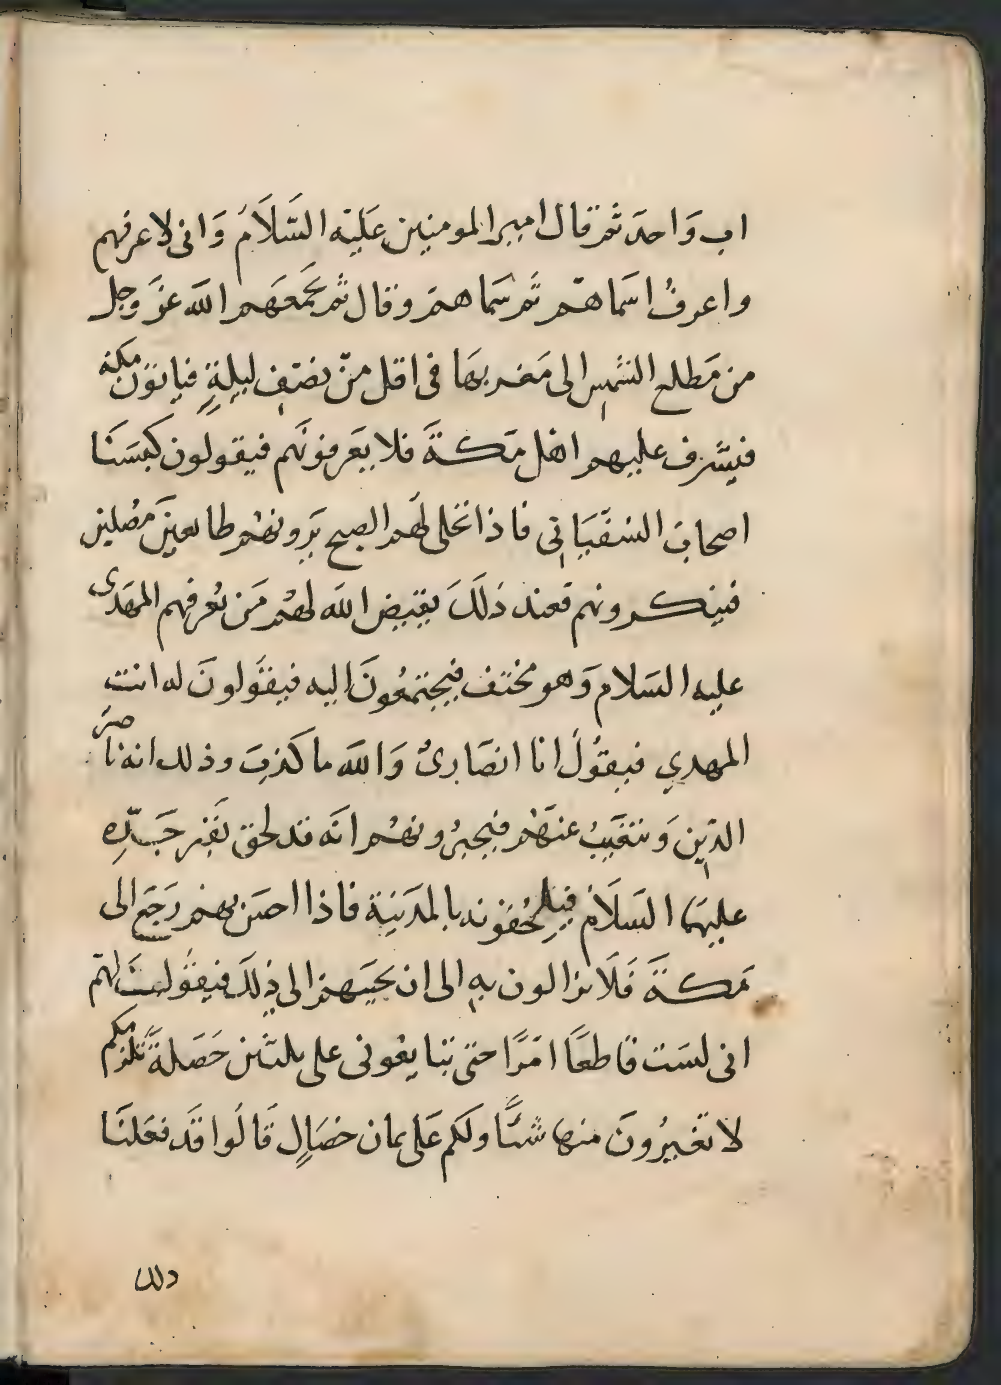 اب وَاحدَ ثم قال امير المومنين عَليَه السَّلَامَ وَانى لاعرفهم
واعرفُ اسَماهم ثم سَماهم وقال ثم يجمَعَهم الله عزَ وجل
من مَطلع الشمس الى مَغربهَا فى اقل منّ نصَف ليلةٍ فياتون مكة
فيشَرف عليهم اهَل مَكةَ فلا يعَرفونَهم فيقولون كبَسَنَا
اصحاب السفَيَانى فاذا تخلى لهَم الصبح يَرونهُم طايعينَ مصُلين
فينكرونهم فعند ذلكَ يقيض الله لهُم مَن يُعرفهم المهَدى
عليه السَلام وَهو مختف فيجتمعُونَ اليه فيقَولونَ له انت
المهدي فيقوُلُ انا انصَارىٌ وَالله ما كذبَ وذلك انه ناصرَ
الدّين وَ يتغَيبُ عنهَم فيخبرُونهُم انَه قد لحق بقَبر جَدّه
عليهما السَلَام فيلحُقونه بالمدَينِة فاذا احسَن بهم رَجَع الى
مَكةَ فَلَا يزالون به الى ان يجيَبهم الى ذلكَ فيقَول لهَم
انى لسَت قاطعاً امرًا حتى تبايعُونى على ثلثين خصَلةً تلزمكم
لا تغَيرُونَ منها شئًا ولكم عَلى ثمان خصَالٍ قَالَوا قَد فعَلنَا
ذلك